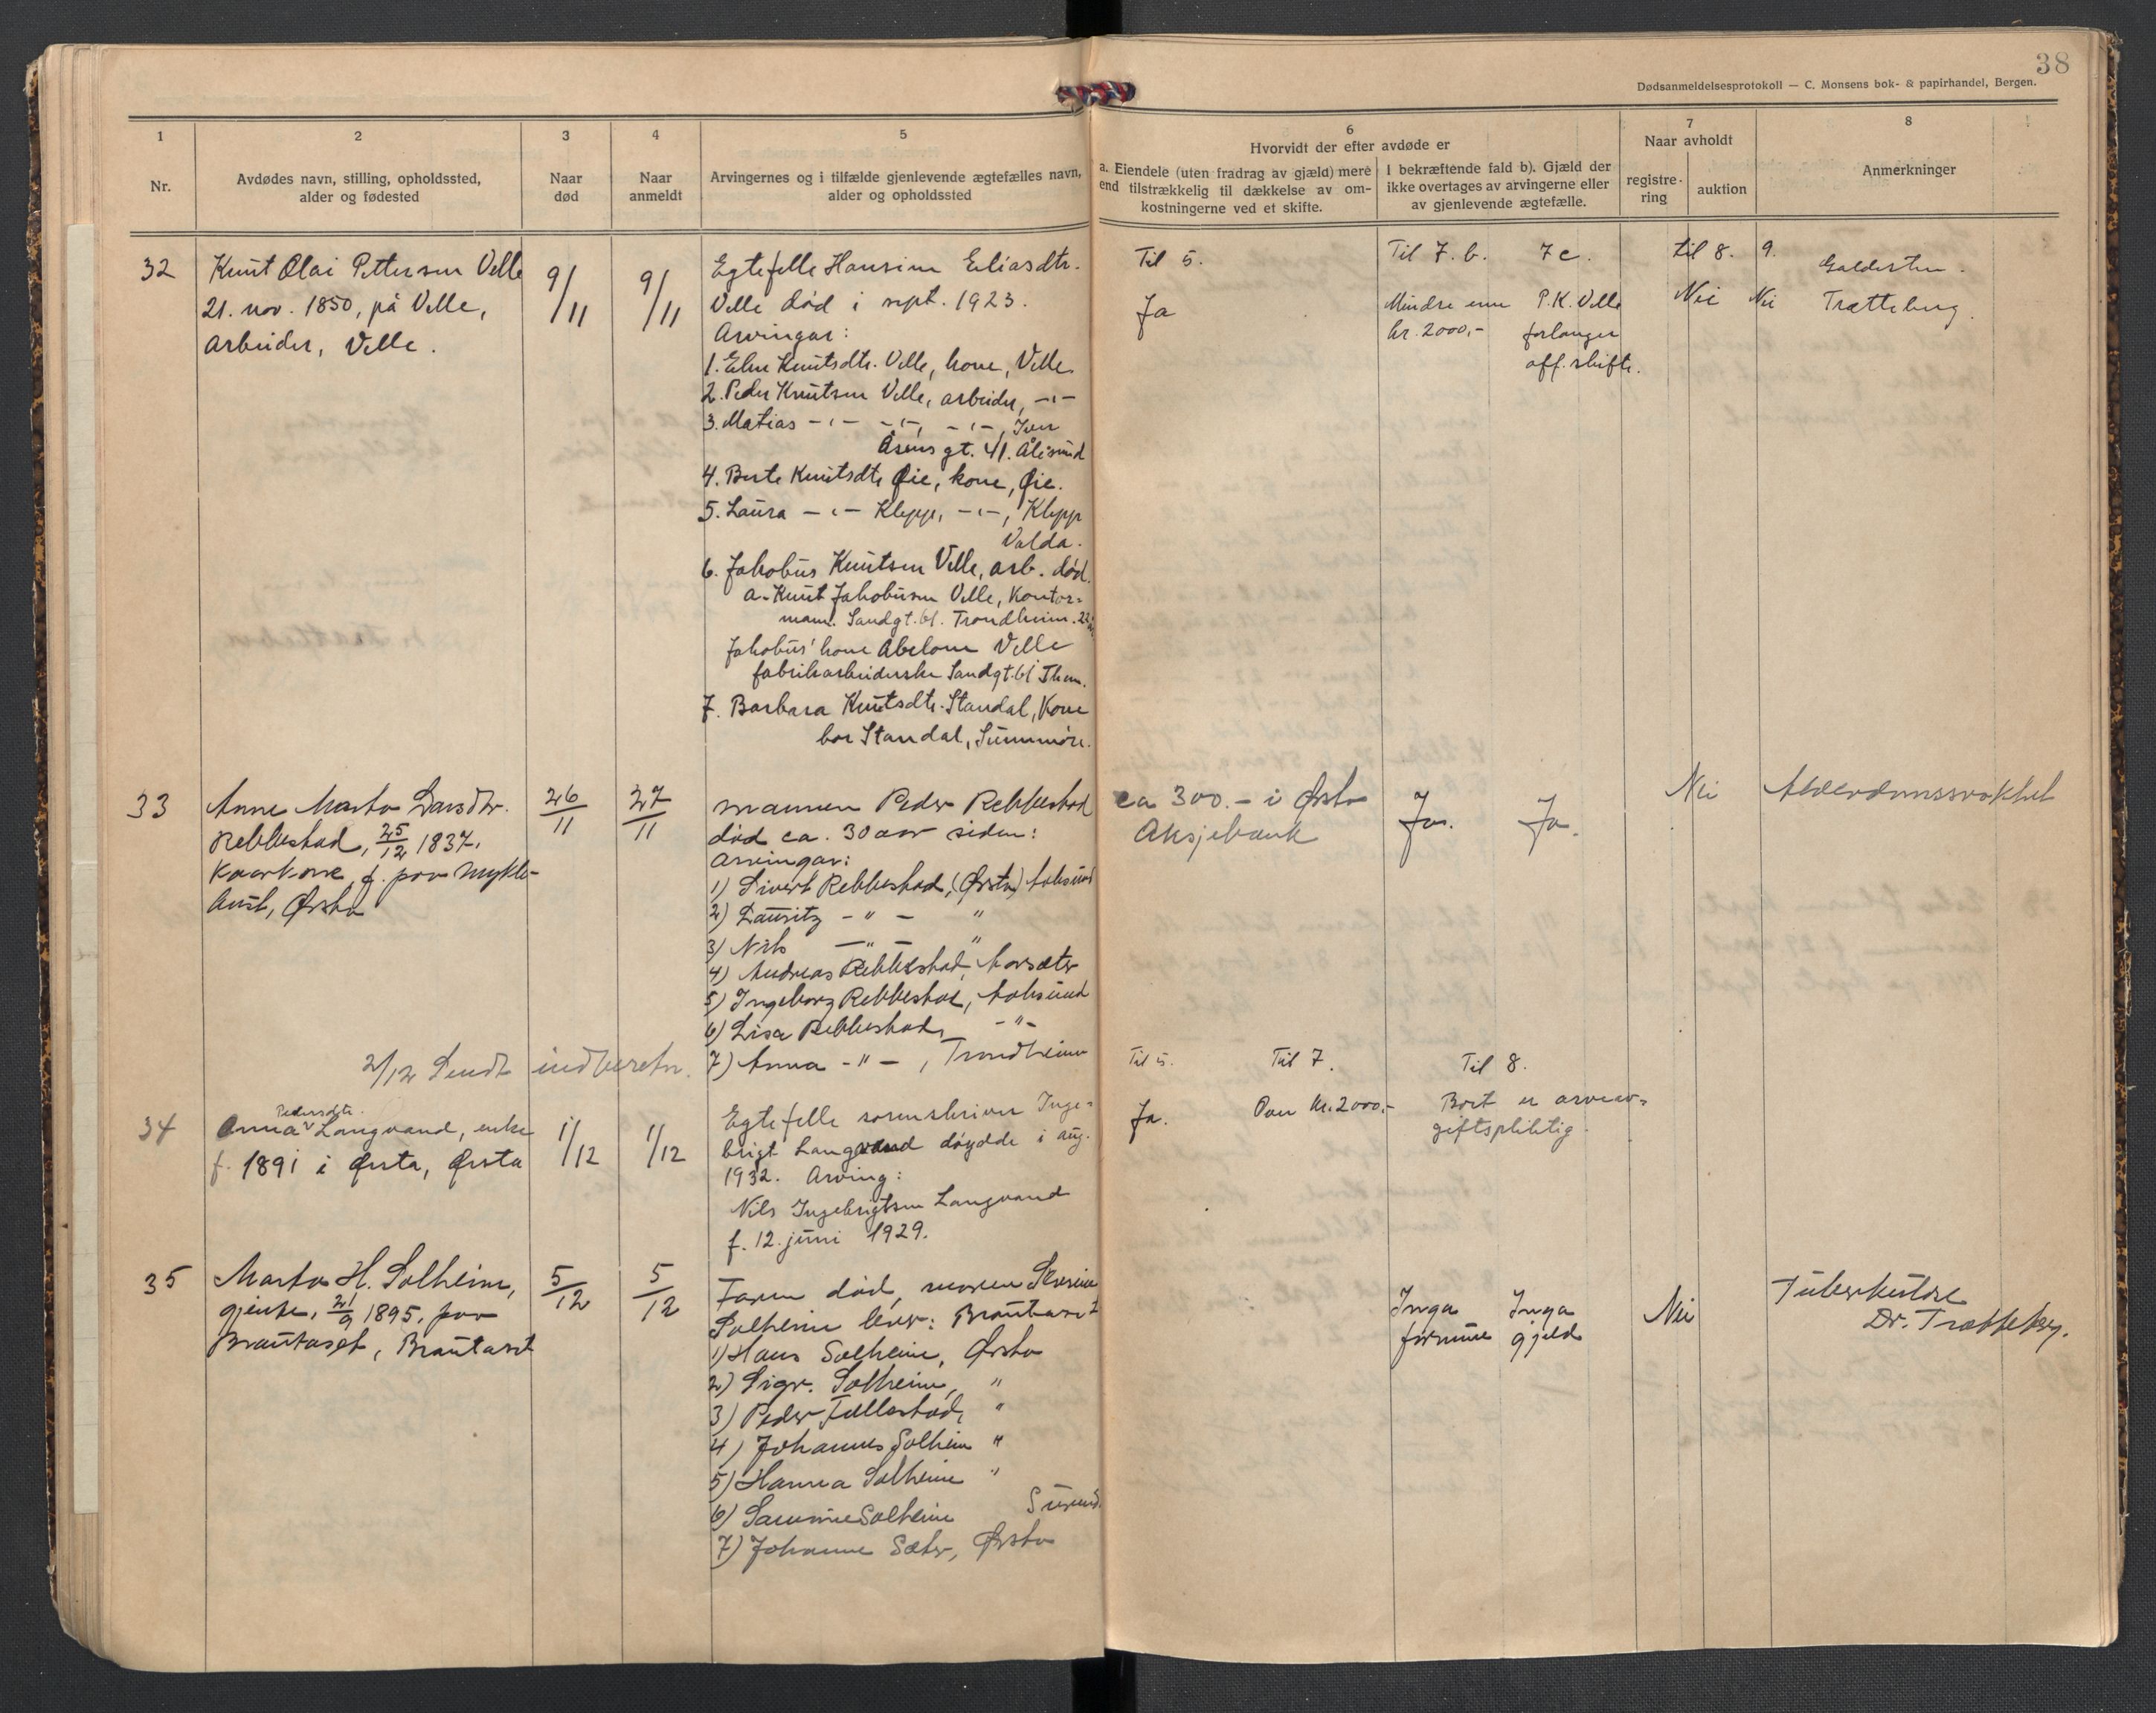 38
Dødsanmeldelsesprotokoll — C. Monsens bok- & papirhandel, Bergen.
1
Nr.
2
Avdødes navn, stilling, opholdssted,
alder og fødested
3
Naar
død
4
Naar
anmeldt
5
Arvingernes og i tilfælde gjenlevende ægtefælles navn,
alder og opholdssted
6
Hvorvidt der efter avdøde er
a. Eiendele (uten fradrag av gjæld) mere
end tilstrækkelig til dækkelse av om-
kostningerne ved et skifte.
I bekræftende fald b). Gjæld der
ikke overtages av arvingerne eller
av gjenlevende ægtefælle.
7
Naar avholdt
registre-
ring
auktion
8
Anmerkninger
32
Knut Olai Pettersen Velle
21. nov. 1850, på Velle,
arbeider, Velle.
9/11
9/11
Egtefelle Hansine Eliasdtr.
Velle død i sept. 1923.
Arvingar:
1. Eline Knutsdtr. Velle, kone, Velle
2. Peder Knutsen Velle, arbeider, -"-
3. Matias -"- -"-, -"-, Iver
Åsens gt. 41. Ålesund
4. Berte Knutsdtr Øie, kone, Øie.
5. Laura -"- Klepp, -"-, Klepp
Volda.
6. Jakobus Knutsen Velle, arb. død.
a. Knut Jakobusen Velle, Kontor=
mann. Sandgt. 61. Trondheim. 22
Jakobus' kone Abelone Velle
fabrikarbeiderske Sandgt. 61 Thm.
7. Barbara Knutsdtr. Standal, Kone
bor Standal, Sunnmøre.
Til 5.
Ja
Til 7. b.
Mindre enn
kr. 2000,-
7 c.
P.K. Velle
forlanger
off. skifte.
til 8.
Nei
9.
Nei
Galdestein.
Trætteberg.
33
Anne Marta Larsdtr.
Rebbestad, 25/12 1837,
Kaarkone, f. paa Mykle-
bust, Ørsta
26/11
27/11
Mannen Peder Rebbestad
død ca. 30 aar siden:
Arvingar:
1) Sivert Rebbestad, (Ørsta) Aalesund
2) Lauritz -"- "
3) Nils -"- "
4) Andreas Rebbestad,
5) Ingeborg Rebbestad, Aalesund
6) Lisa Rebbestad, -"-
7) Anna -"-, Trondheim
2/12 Sendt indberetn.
ca 300.- i Ørsta
Aksjebank
Ja.
Ja.
Nei
Alderdomssvakhet
34
Pedersdtr.
Anna Langvand, enke
f. 1891 i Ørsta, Ørsta
1/12
1/12
Egtefelle sorenskriver Inge=
brigt Langvand døydde i aug.
1932. Arving:
Nils Ingebrigtsen Langvand
f. 12. juni 1929.
Til 5.
Ja.
Til 7.
Over kr. 2000,-
Til 8.
Bort er arveav=
giftspliktig.
35
Marta H. Solheim,
gjente, 21/9 1895, paa
Brautaset, Brautaset
5/12
5/12
Faren død, moren Severine
Solheim lever: Brautaset
1) Hans Solheim, Ørsta
2) Sigv. Solheim, "
3) Peder Follestad, "
4) Johannes Solheim "
5) Hanna Solheim "
6) Solheim
7) Johanne Sæter, Ørsta
Inga
formue
Inga
gjeld
Nei
Tuberkulose
Dr. Trætteberg.